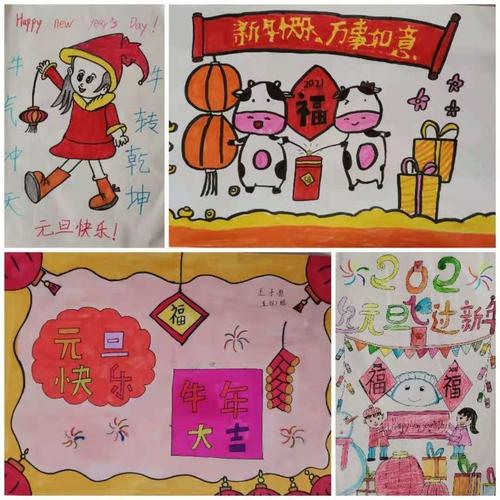 Happy new year's Day!
牛气冲天
牛转乾坤
元旦快乐!
新年快乐、万事如意
2021
福
福
元旦
快乐
牛年
大吉
202
元旦 过新年
福
福